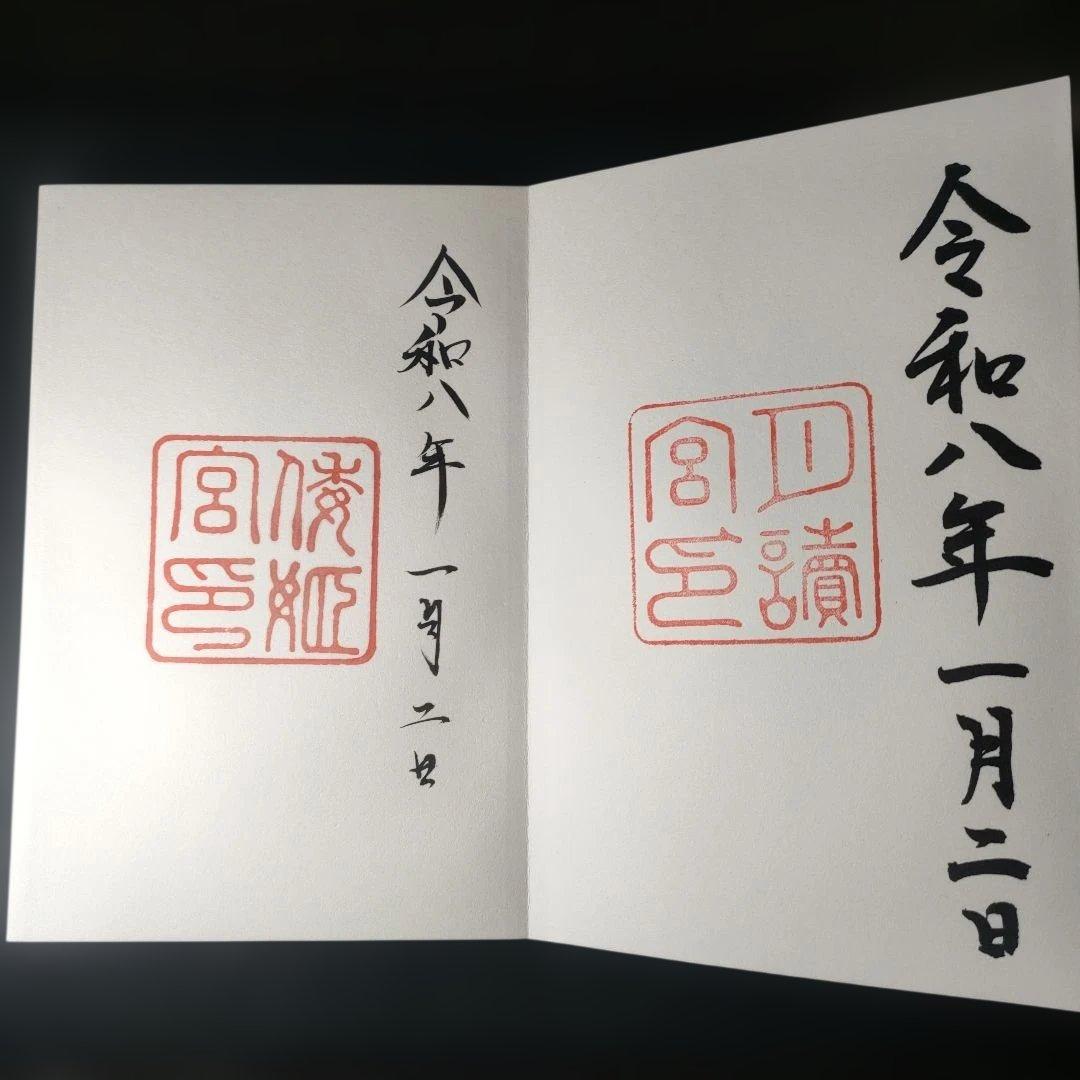 令和八年一月二日
月讀
宮印
令和八年一月二日
倭姫
宮印